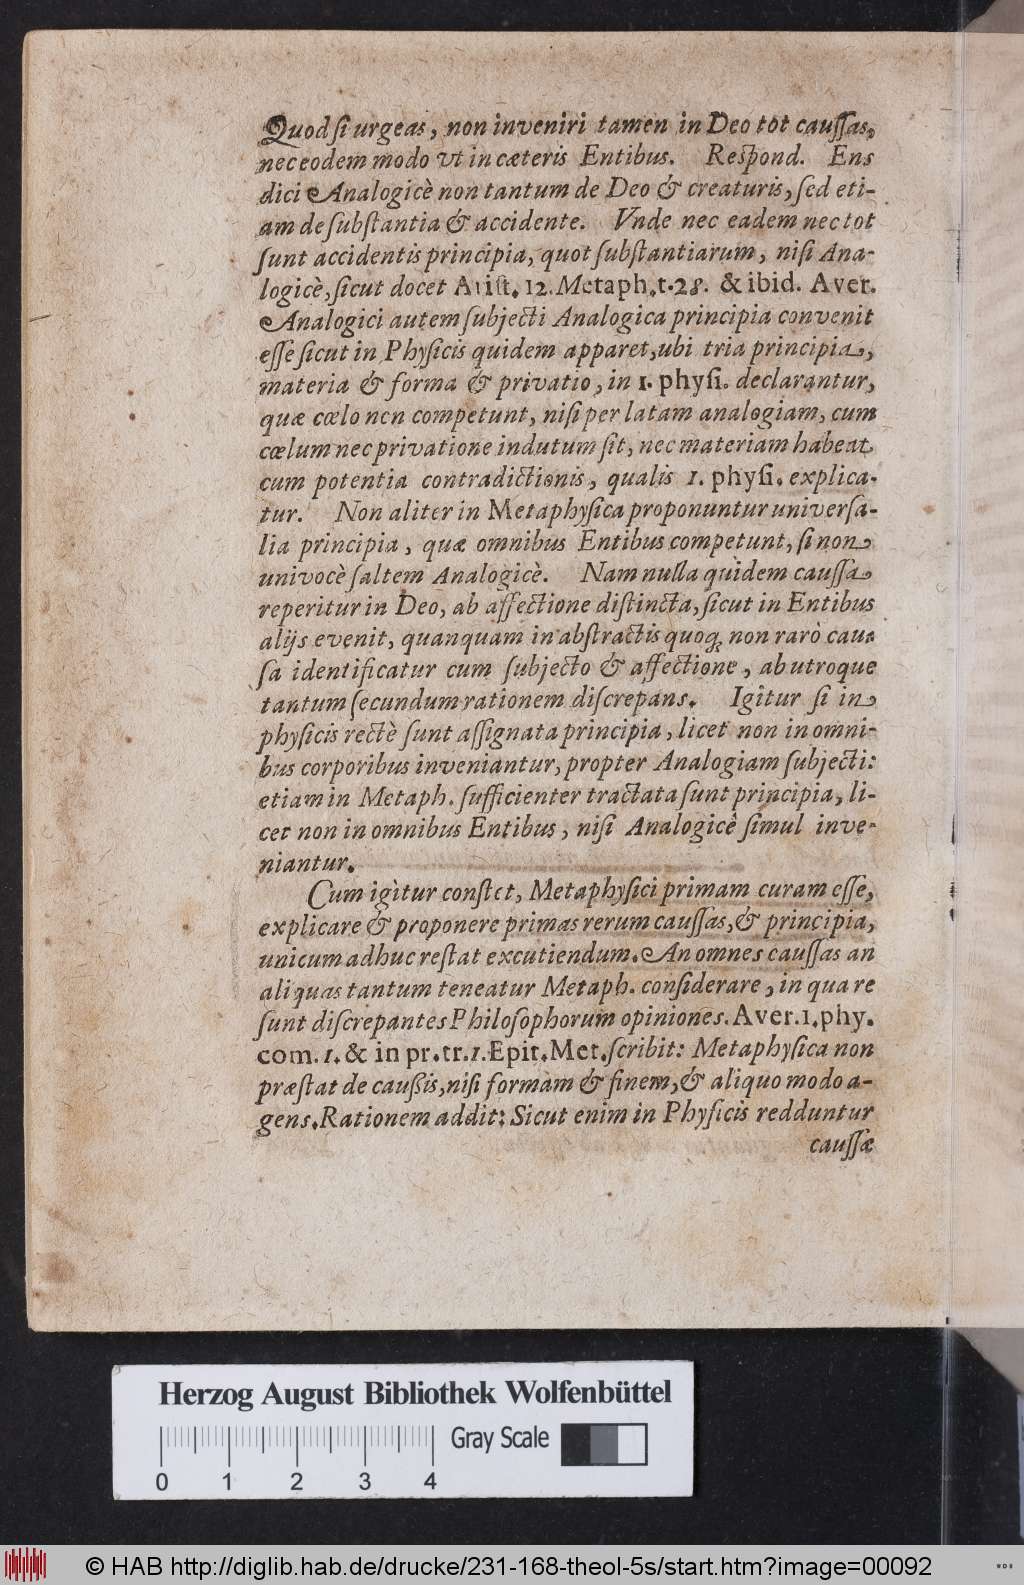 Quod ſi urgeas, non inveniri tamen in Deo tot cauſſas,
nec eodem modo vt in cæteris Entibus. Reſpond. Ens
dici Analogicè non tantum de Deo & creaturis, ſed eti-
am de ſubſtantia & accidente. Vnde nec eadem nec tot
ſunt accidentis principia, quot ſubſtantiarum, niſi Ana-
logicè, ſicut docet Ariſt. 12. Metaph. t. 28. & ibid. Aver.
Analogici autem ſubjecti Analogica principia convenit
eſſe ſicut in Phyſicis quidem apparet, ubi tria principia,
materia & forma & privatio, in 1. phyſi. declarantur,
quæ cœlo non competunt, niſi per latam analogiam, cum
cœlum nec privatione indutum ſit, nec materiam habeat
cum potentia contradictionis, qualis 1. phyſi. explica-
tur. Non aliter in Metaphyſica proponuntur univerſa-
lia principia, quæ omnibus Entibus competunt, ſi non
univocè ſaltem Analogicè. Nam nulla quidem cauſſa
reperitur in Deo, ab affectione diſtincta, ſicut in Entibus
alijs evenit, quanquam in abſtractis quoq; non rarò cau-
ſa identificatur cum ſubjecto & affectione, ab utroque
tantum ſecundum rationem diſcrepans. Igitur ſi in
phyſicis rectè ſunt aſſignata principia, licet non in omni-
bus corporibus inveniantur, propter Analogiam ſubjecti:
etiam in Metaph. ſufficienter tractata ſunt principia, li-
cet non in omnibus Entibus, niſi Analogicè ſimul inve-
niantur.
Cum igitur conſtet, Metaphyſici primam curam eſſe,
explicare & proponere primas rerum cauſſas, & principia,
unicum adhuc reſtat excutiendum. An omnes cauſſas an
aliquas tantum teneatur Metaph. conſiderare, in qua re
ſunt diſcrepantes Philoſophorum opiniones. Aver. 1. phy.
com. 1. & in pr. tr. 1. Epit. Met. ſcribit: Metaphyſica non
præſtat de caußis, niſi formam & finem, & aliquo modo a-
gens. Rationem addit: Sicut enim in Phyſicis redduntur
cauſſæ
Herzog August Bibliothek Wolfenbüttel
Gray Scale
0 1 2 3 4
© HAB http://diglib.hab.de/drucke/231-168-theol-5s/start.htm?image=00092